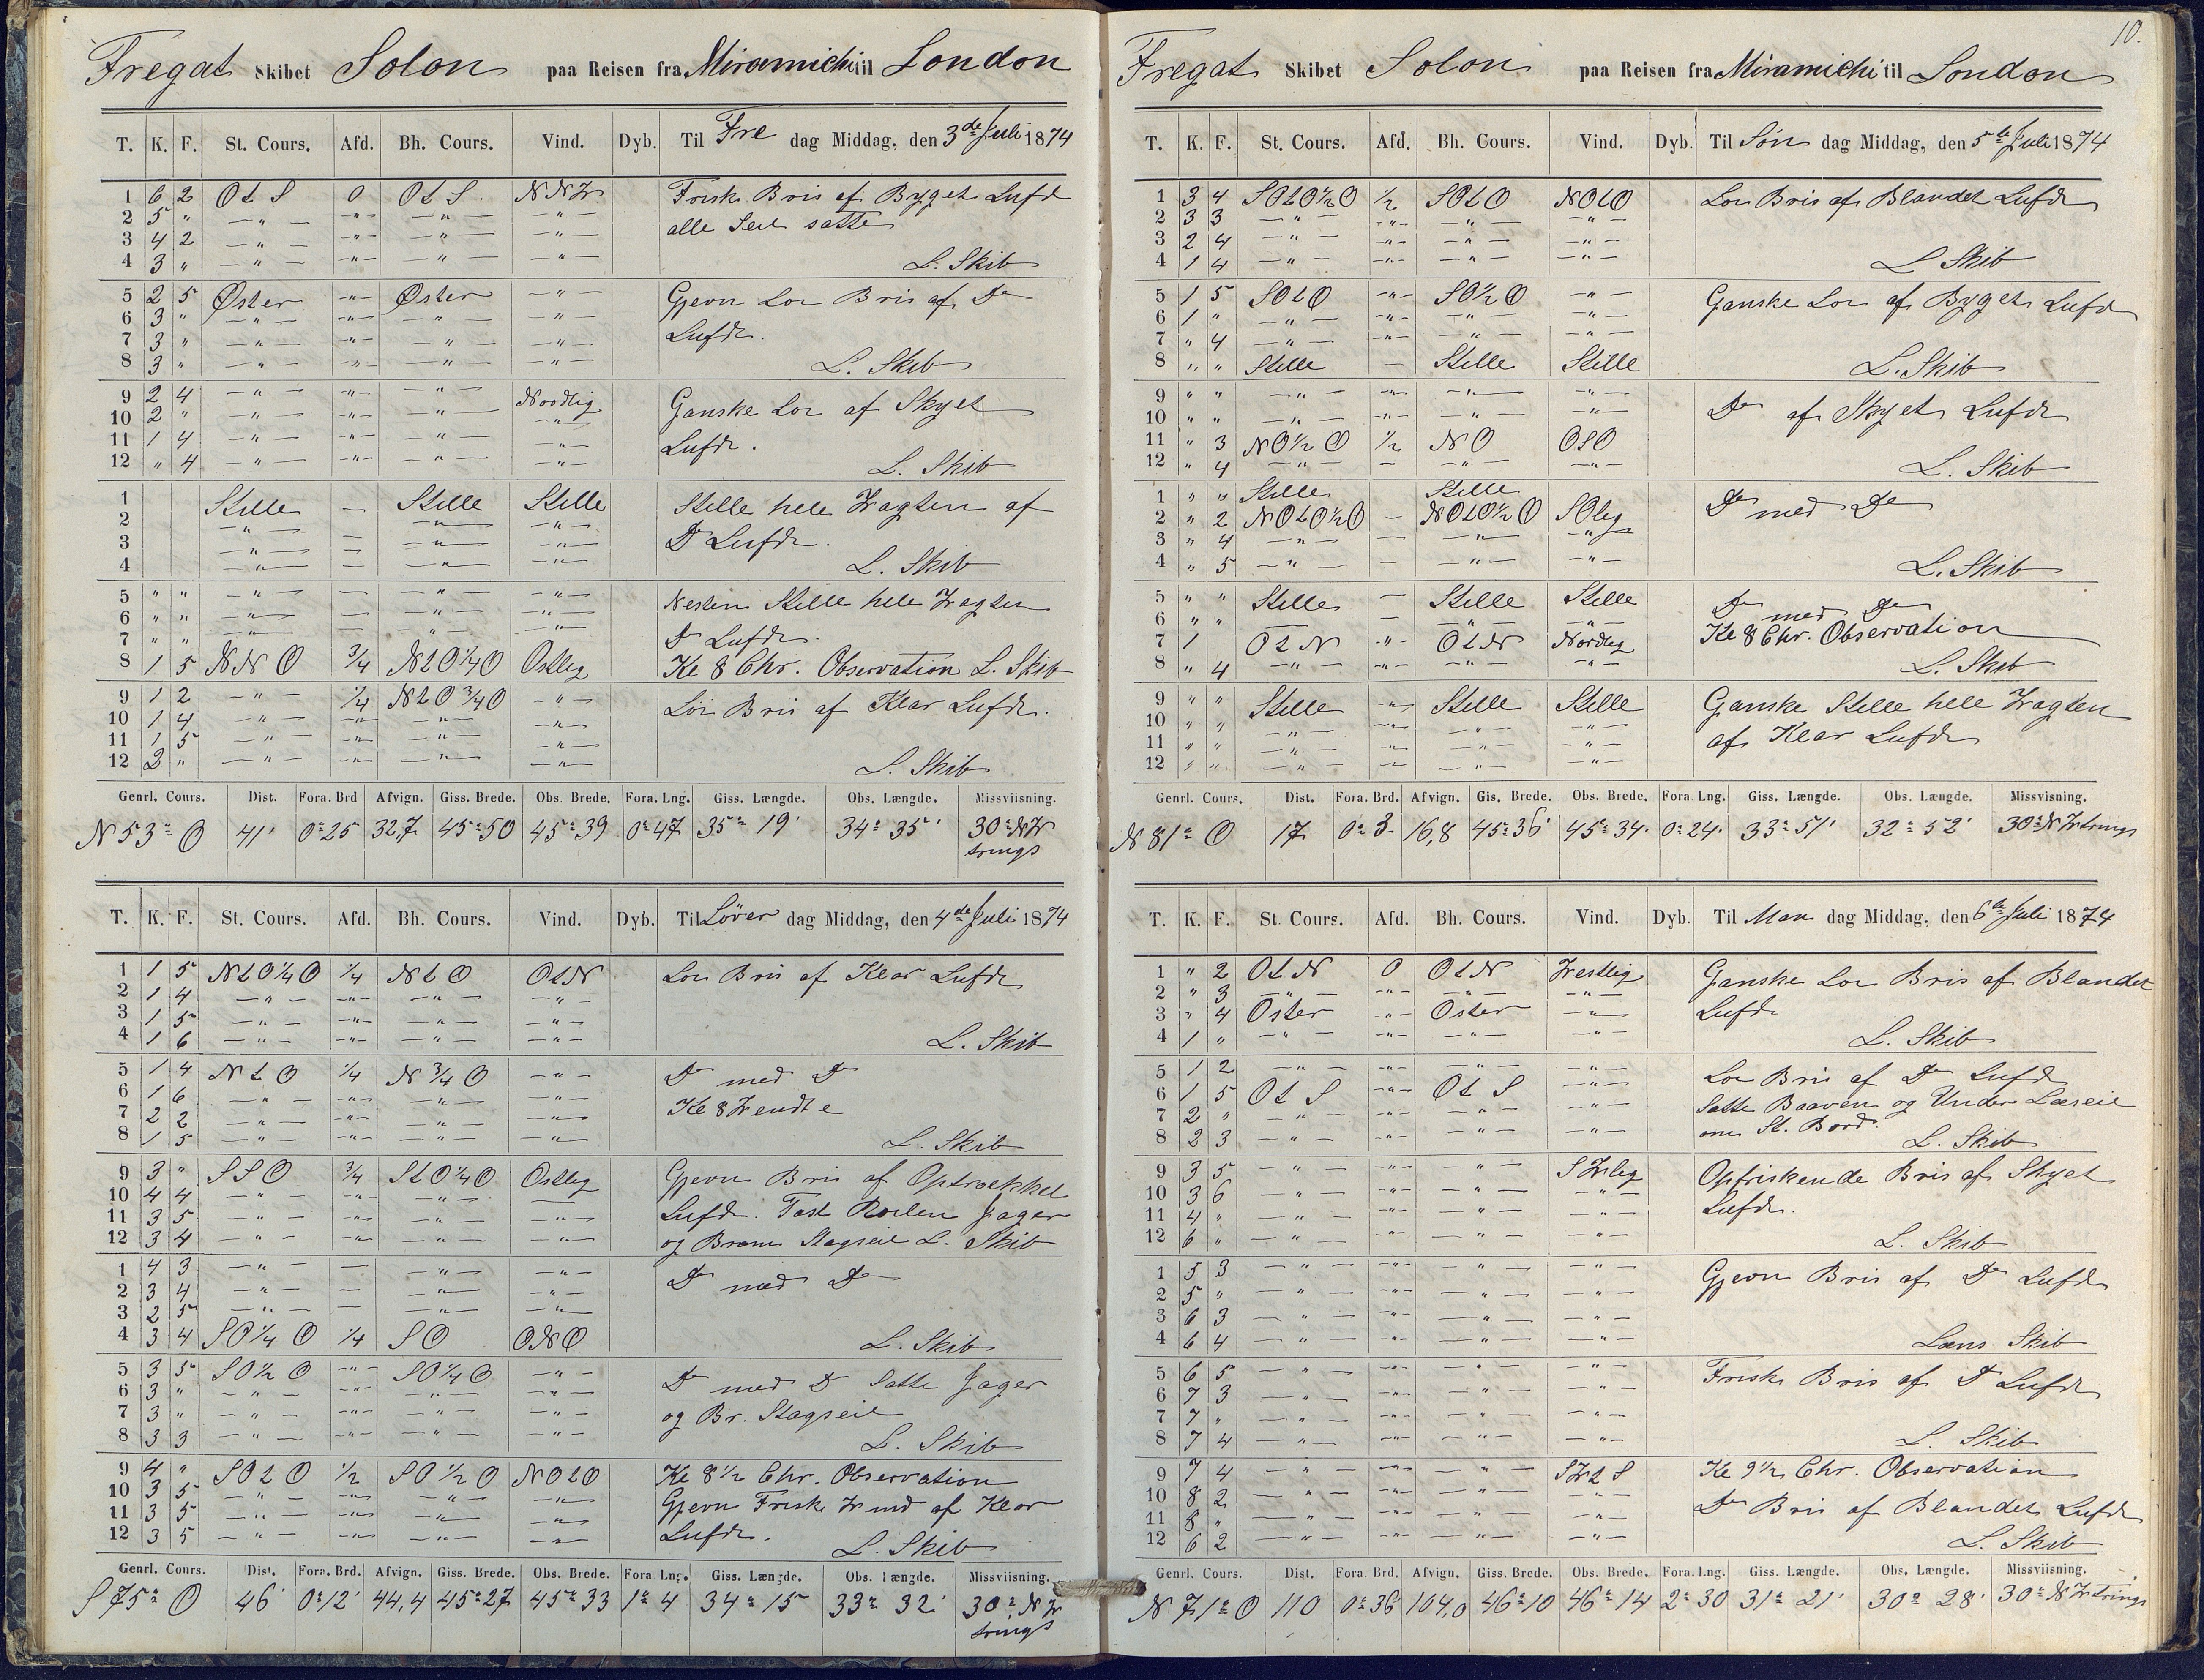 Fregat Skibet Solon paa Reisen fra Miramichi til London
T. K. F. St. Cours. Afd. Bh. Cours. Vind. Dyb. Til Fre dag Middag, den 3de Juli 1874
1 6 2 Ot S 0 Ot S NNW Frisk Bris af Byget Lufdt
2 5 " — " — -"- — " — — " — alle Seil satte
3 4 2 — " — -"- — " — — " —
4 3 " — " — -"- — " — — " — L. Skib
5 2 5 Øster -"- Øster — " — Gjevn Lor Bris af Do
6 3 " — " — -"- — " — — " —
7 3 " — " — -"- — " — — " — Lufdt.
8 3 " — " — -"- — " — — " — L. Skib
9 2 4 — " — -"- — " — Nordlig Ganske Lor af Skyet
10 2 " — " — -"- — " — — " —
11 1 4 — " — -"- — " — — " — Lufdt.
12 " 4 — " — -"- — " — — " — L. Skib
1 Stille — Stille Stille Stille hele Wagten af
2 — " — — " — — " —
3 — " — — — " — — " — Do Lufdt.
4 — " — — — " — — " — L. Skib
5 " " — " — — — " — — " — Nesten Stille hele Wagten
6 " " — " — — — " — — " —
7 " " — " — — — " — — " — Do Lufdt.
8 1 5 NNO 3/4 NtO 1/4 O Ostlig Kl 8 Chr. Observation L. Skib
9 1 2 — " — 1/4 NtO 3/4 O — " — Lor Bris af Klar Lufdt.
10 1 4 — " — -"- — " — — " —
11 1 5 — " — -"- — " — — " —
12 2 " — " — -"- — " — — " — L. Skib
Genrl. Cours. Dist. Fora. Brd Afvign. Giss. Brede. Obs. Brede. Fora. Lng. Giss. Længde. Obs. Længde. Missviisning.
N 53° O 41' 0° 25 32,7 45° 50 45° 39 0° 47 35° 19' 34° 35' 30° NW
trings
T. K. F. St. Cours. Afd. Bh. Cours. Vind. Dyb. Til Löver dag Middag, den 4de Juli 1874
1 1 5 NtO 1/4 O 1/4 NtO OtN Lor Bris af Klar Lufdt
2 1 4 — " — -"- — " — — " —
3 1 5 — " — -"- — " — — " —
4 1 6 — " — -"- — " — — " — L. Skib
5 1 4 NtO 1/4 N 3/4 O — " — Do med Do
6 1 6 — " — -"- — " — — " — Kl 8 Wendte
7 2 2 — " — -"- — " — — " —
8 1 5 — " — -"- — " — — " — L. Skib
9 3 " SSO 3/4 StO 1/4 O Ostlig Gjevn Bris af Optrækket
10 4 4 — " — -"- — " —
11 3 5 — " — -"- — " — — " — Lufdt. Fast Roilen Jager
12 3 4 — " — -"- — " — — " — og Bram Stagseil L. Skib
1 4 3 — " — — — " — — " — Do med Do
2 3 4 — " — — — " — — " —
3 2 5 — " — — — " — — " —
4 3 4 SO 1/4 O 1/4 SO ONO L. Skib
5 3 5 SO 1/2 O -"- SO 1/4 O — " — Do med Do Satte Jager
6 3 " — " — -"- — " — — " —
7 3 " — " — -"- — " — — " — og Br. Stagseil
8 3 3 — " — -"- — " — — " — L. Skib
9 4 " SOtO 1/2 SO 1/2 O NOtO Kl 8 1/2 Chr. Observation
10 3 5 — " — -"- — " — — " — Gjevn Frisk Wind af Klar
11 3 5 — " — -"- — " — — " —
12 3 5 — " — -"- — " — — " — Lufdt. L. Skib
Genrl. Cours. Dist. Fora. Brd. Afvign. Giss. Brede. Obs. Brede. Fora Lng. Giss. Længde. Obs. Længde. Missviisning.
S 75° O 46' 0° 12' 44,4 45° 27 45° 33 1° 4 34° 15 33° 32' 30° NW
trings
10.
Fregat Skibet Solon paa Reisen fra Miramichi til London
T. K. F. St. Cours. Afd. Bh. Cours. Vind. Dyb. Til Søn dag Middag, den 5te Juli 1874
1 3 4 SOtO 1/2 O 1/2 SOtO NOtO Lor Bris af Blandet Lufdt
2 3 3 — " — -"- — " — — " —
3 2 4 — " — -"- — " — — " —
4 1 4 — " — -"- — " — — " — L Skib
5 1 5 SOtO -"- SO 1/2 O — " — Ganske Lor af Byget Lufdt
6 1 " — " — -"- — " — — " —
7 " 4 — " — -"- — " — — " —
8 " " Stille — Stille Stille L. Skib
9 " " — " — -"- — " — — " — Do af Skyet Lufdt
10 " " — " — -"- — " — — " —
11 " 3 NO 1/2 O 1/2 NO OSO
12 " 4 — " — — — " — — " — L. Skib
1 " " Stille Stille Do med Do
2 " 2 NOtO 1/2 O — NOtO 1/2 O SOlig
3 " 4 — " — — — " — — " —
4 " 5 — " — — — " — — " — L. Skib
5 " " Stille — Stille Stille Do med Do
6 " " — " — — — " — — " —
7 1 OtN -"- OtN Nordlig Kl 8 Chr. Observation
8 " 4 — " — -"- — " — — " — L. Skib
9 " " Stille -"- Stille Stille Ganske Stille hele Wagten
10 " " — " — -"- — " — — " —
11 " " — " — -"- — " — — " — af Klar Lufdt
12 " " — " — -"- — " — — " —
Genrl. Cours. Dist. Fora. Brd. Afvign. Gis. Brede. Obs. Brede. Fora Lng. Giss. Længde. Obs. Længde. Missvisning.
N 81° O 17 0° 3 16,8 45° 36' 45° 34 0° 24 33° 51' 32° 52' 30° NW trings
T. K. F. St. Cours. Afd. Bh. Cours. Vind. Dyb. Til Man dag Middag, den 6te Juli 1874
1 " 2 OtN 0 OtN Westlig Ganske Lor Bris af Blandet
2 " 3 — " — -"- — " — — " —
3 " 4 Oster -"- Oster — " — Lufdt
4 1 " — " — -"- — " — — " — L. Skib
5 1 2 — " — -"- — " — — " — Lor Bris af Do Lufdt
6 1 5 Ot S -"- Ot S — " — Satte Baaven og Under Læseil
7 2 " — " — -"- — " — — " — om St. Bord.
8 2 3 — " — -"- — " — — " — L. Skib
9 3 5 — " — -"- — " — SWlig Opfriskende Bris af Skyet
10 3 6 — " — -"- — " — — " —
11 4 " — " — -"- — " — — " — Lufdt.
12 6 " — " — -"- — " — — " — L. Skib
1 5 3 — " — -"- — " — — " — Gjevn Bris af Do Lufdt
2 5 " — " — -"- — " — — " —
3 6 3 — " — -"- — " — — " —
4 6 4 — " — -"- — " — — " — Læns Skib
5 6 5 — " — -"- — " — — " — Frisk Bris af Do Lufdt
6 7 3 — " — -"- — " — — " —
7 7 " — " — -"- — " — — " —
8 7 4 — " — -"- — " — — " — L. Skib
9 7 4 — " — -"- — " — SWtS Kl 9 1/2 Chr. Observation
10 8 2 — " — -"- — " — — " —
11 8 " — " — -"- — " — — " — Do Bris af Blandet Lufdt
12 6 2 — " — -"- — " — — " — L. Skib
Genrl. Cours. Dist. Fora. Brd. Afvign. Giss. Brede. Obs. Brede. Fora. Lng. Giss. Længde. Obs. Længde. Missviisning.
N 71° O 110 0° 36 104,0 46° 10 46° 14 2° 30 31° 21' 30° 28' 30° NW trings